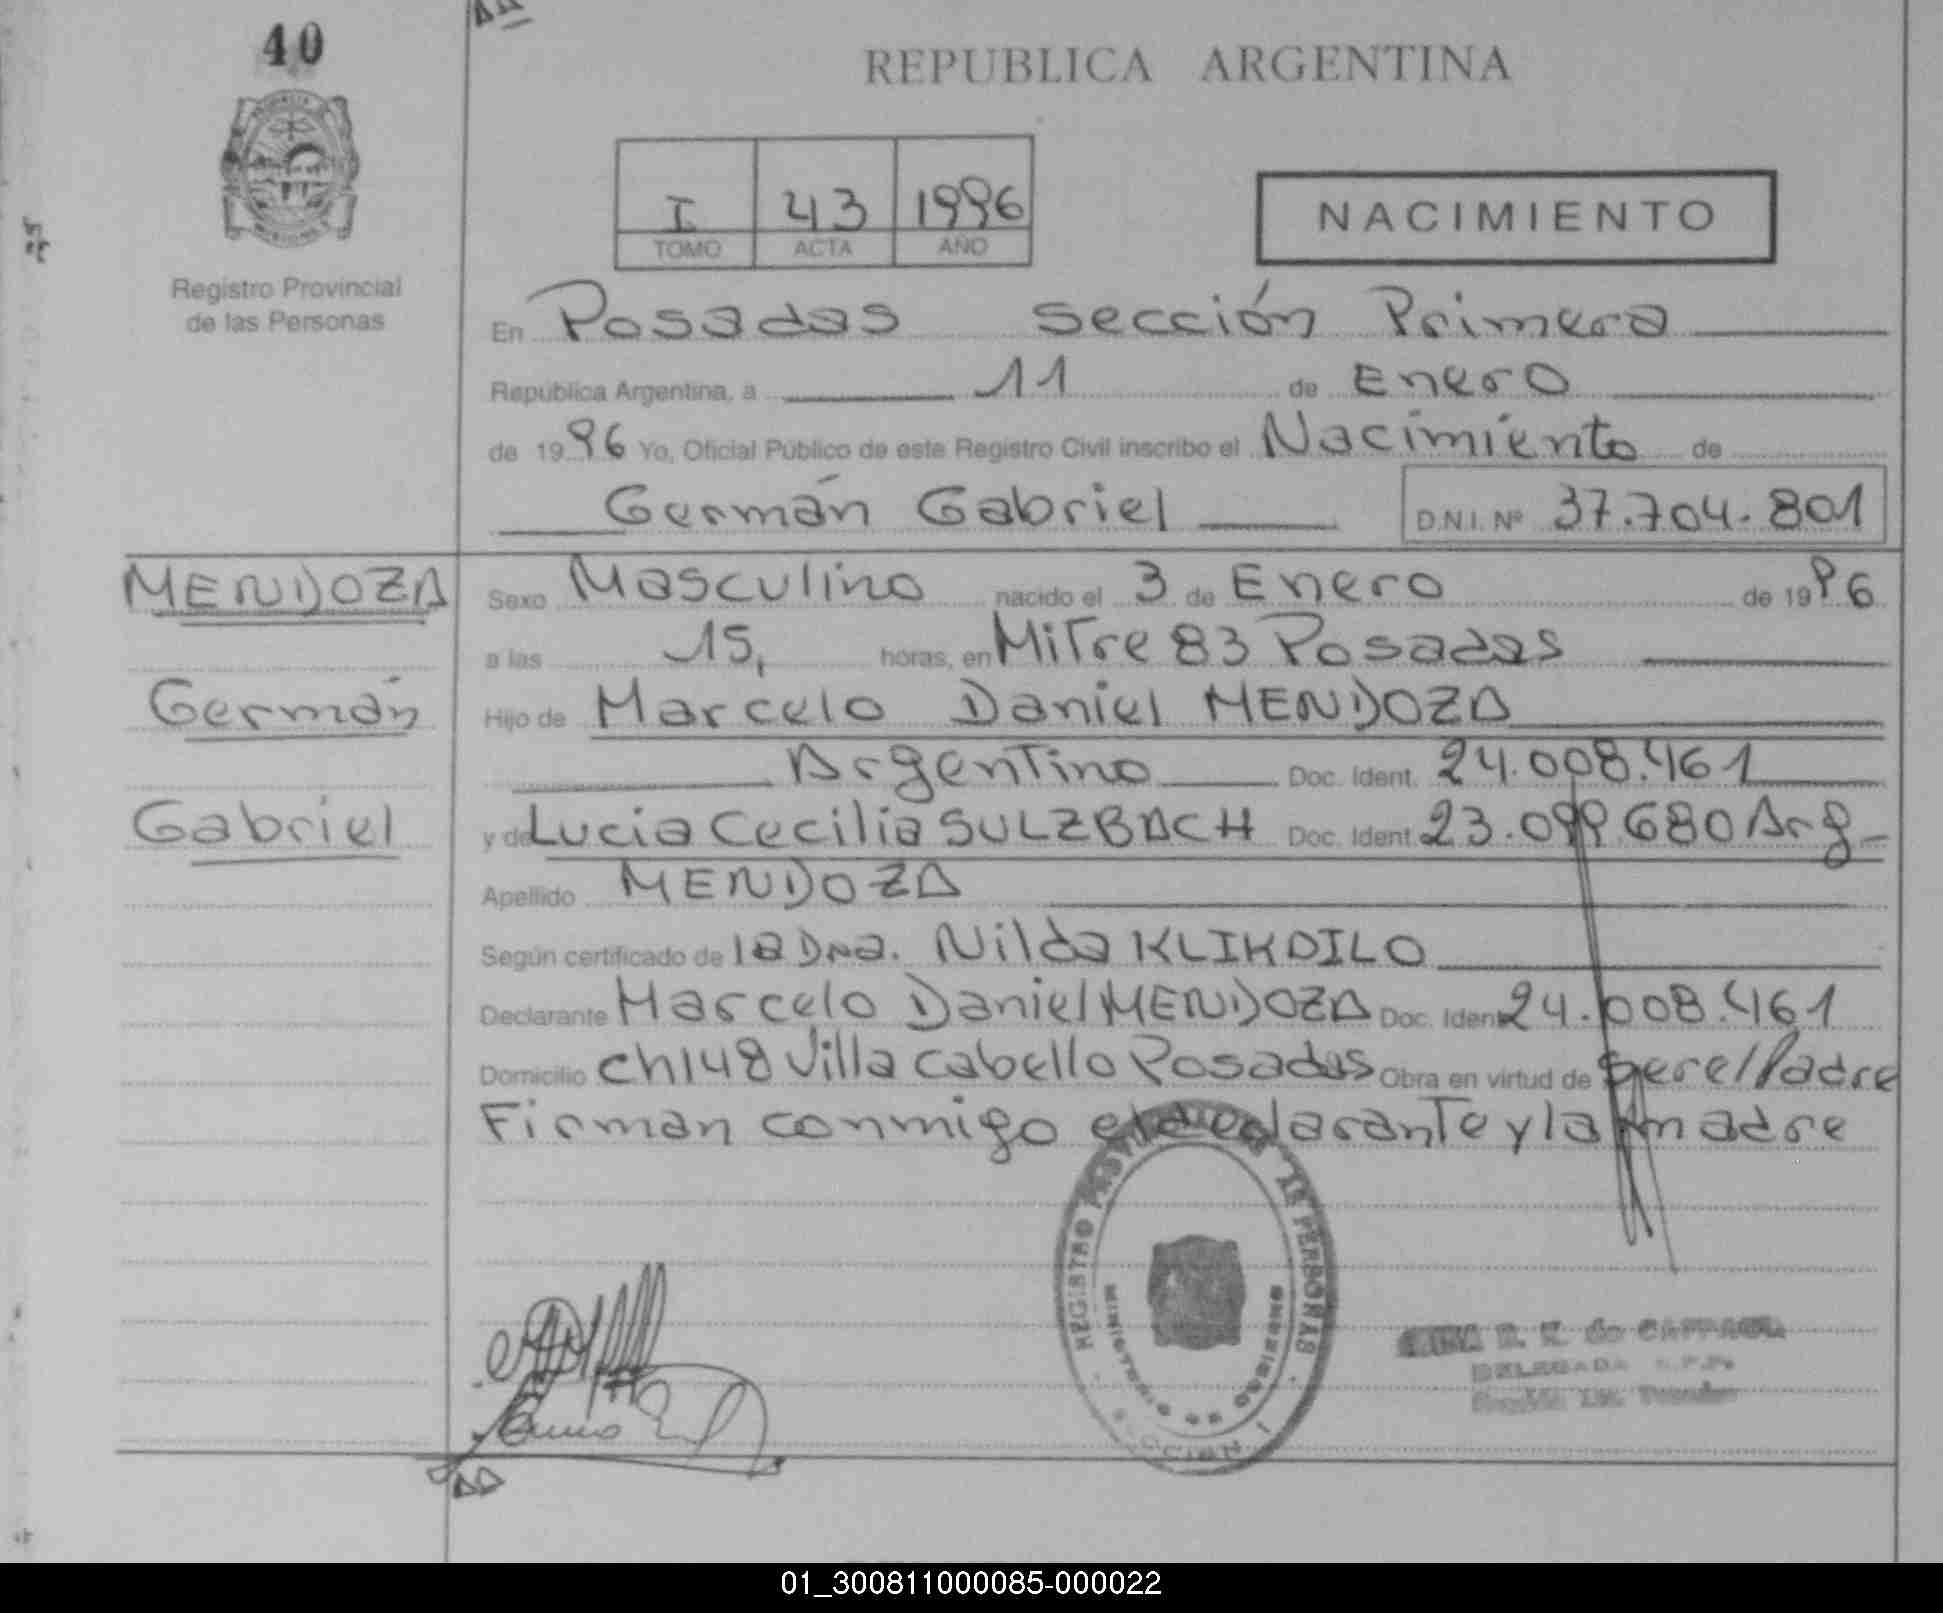 40
REPUBLICA ARGENTINA
I 43 1996
TOMO ACTA AÑO
NACIMIENTO
Registro Provincial
de las Personas
En Posadas sección Primera
República Argentina, a 11 de Enero
de 1996 Yo, Oficial Público de este Registro Civil inscribo el Nacimiento de
Germán Gabriel D.N.I. Nº 37.704.801
MENDOZA
Germán
Gabriel
Sexo Masculino nacido el 3 de Enero de 1996
a las 15, horas, en Mitre 83 Posadas
Hijo de Marcelo Daniel MENDOZA
Argentino Doc. Ident. 24.008.461
y de Lucia Cecilia SULZBACH Doc. Ident. 23.099.680 Arg
Apellido MENDOZA
Según certificado de la Dra. Nilda
Declarante Marcelo Daniel MENDOZA Doc. Ident 24.008.461
Domicilio ch 148 Villa cabello Posadas Obra en virtud de ser el Padre
Firman conmigo el declarante y la madre
REGISTRO PROVINCIAL DE LAS PERSONAS
MINISTERIO DE GOBIERNO
SECCION I
DELEGADA
01_300811000085-000022